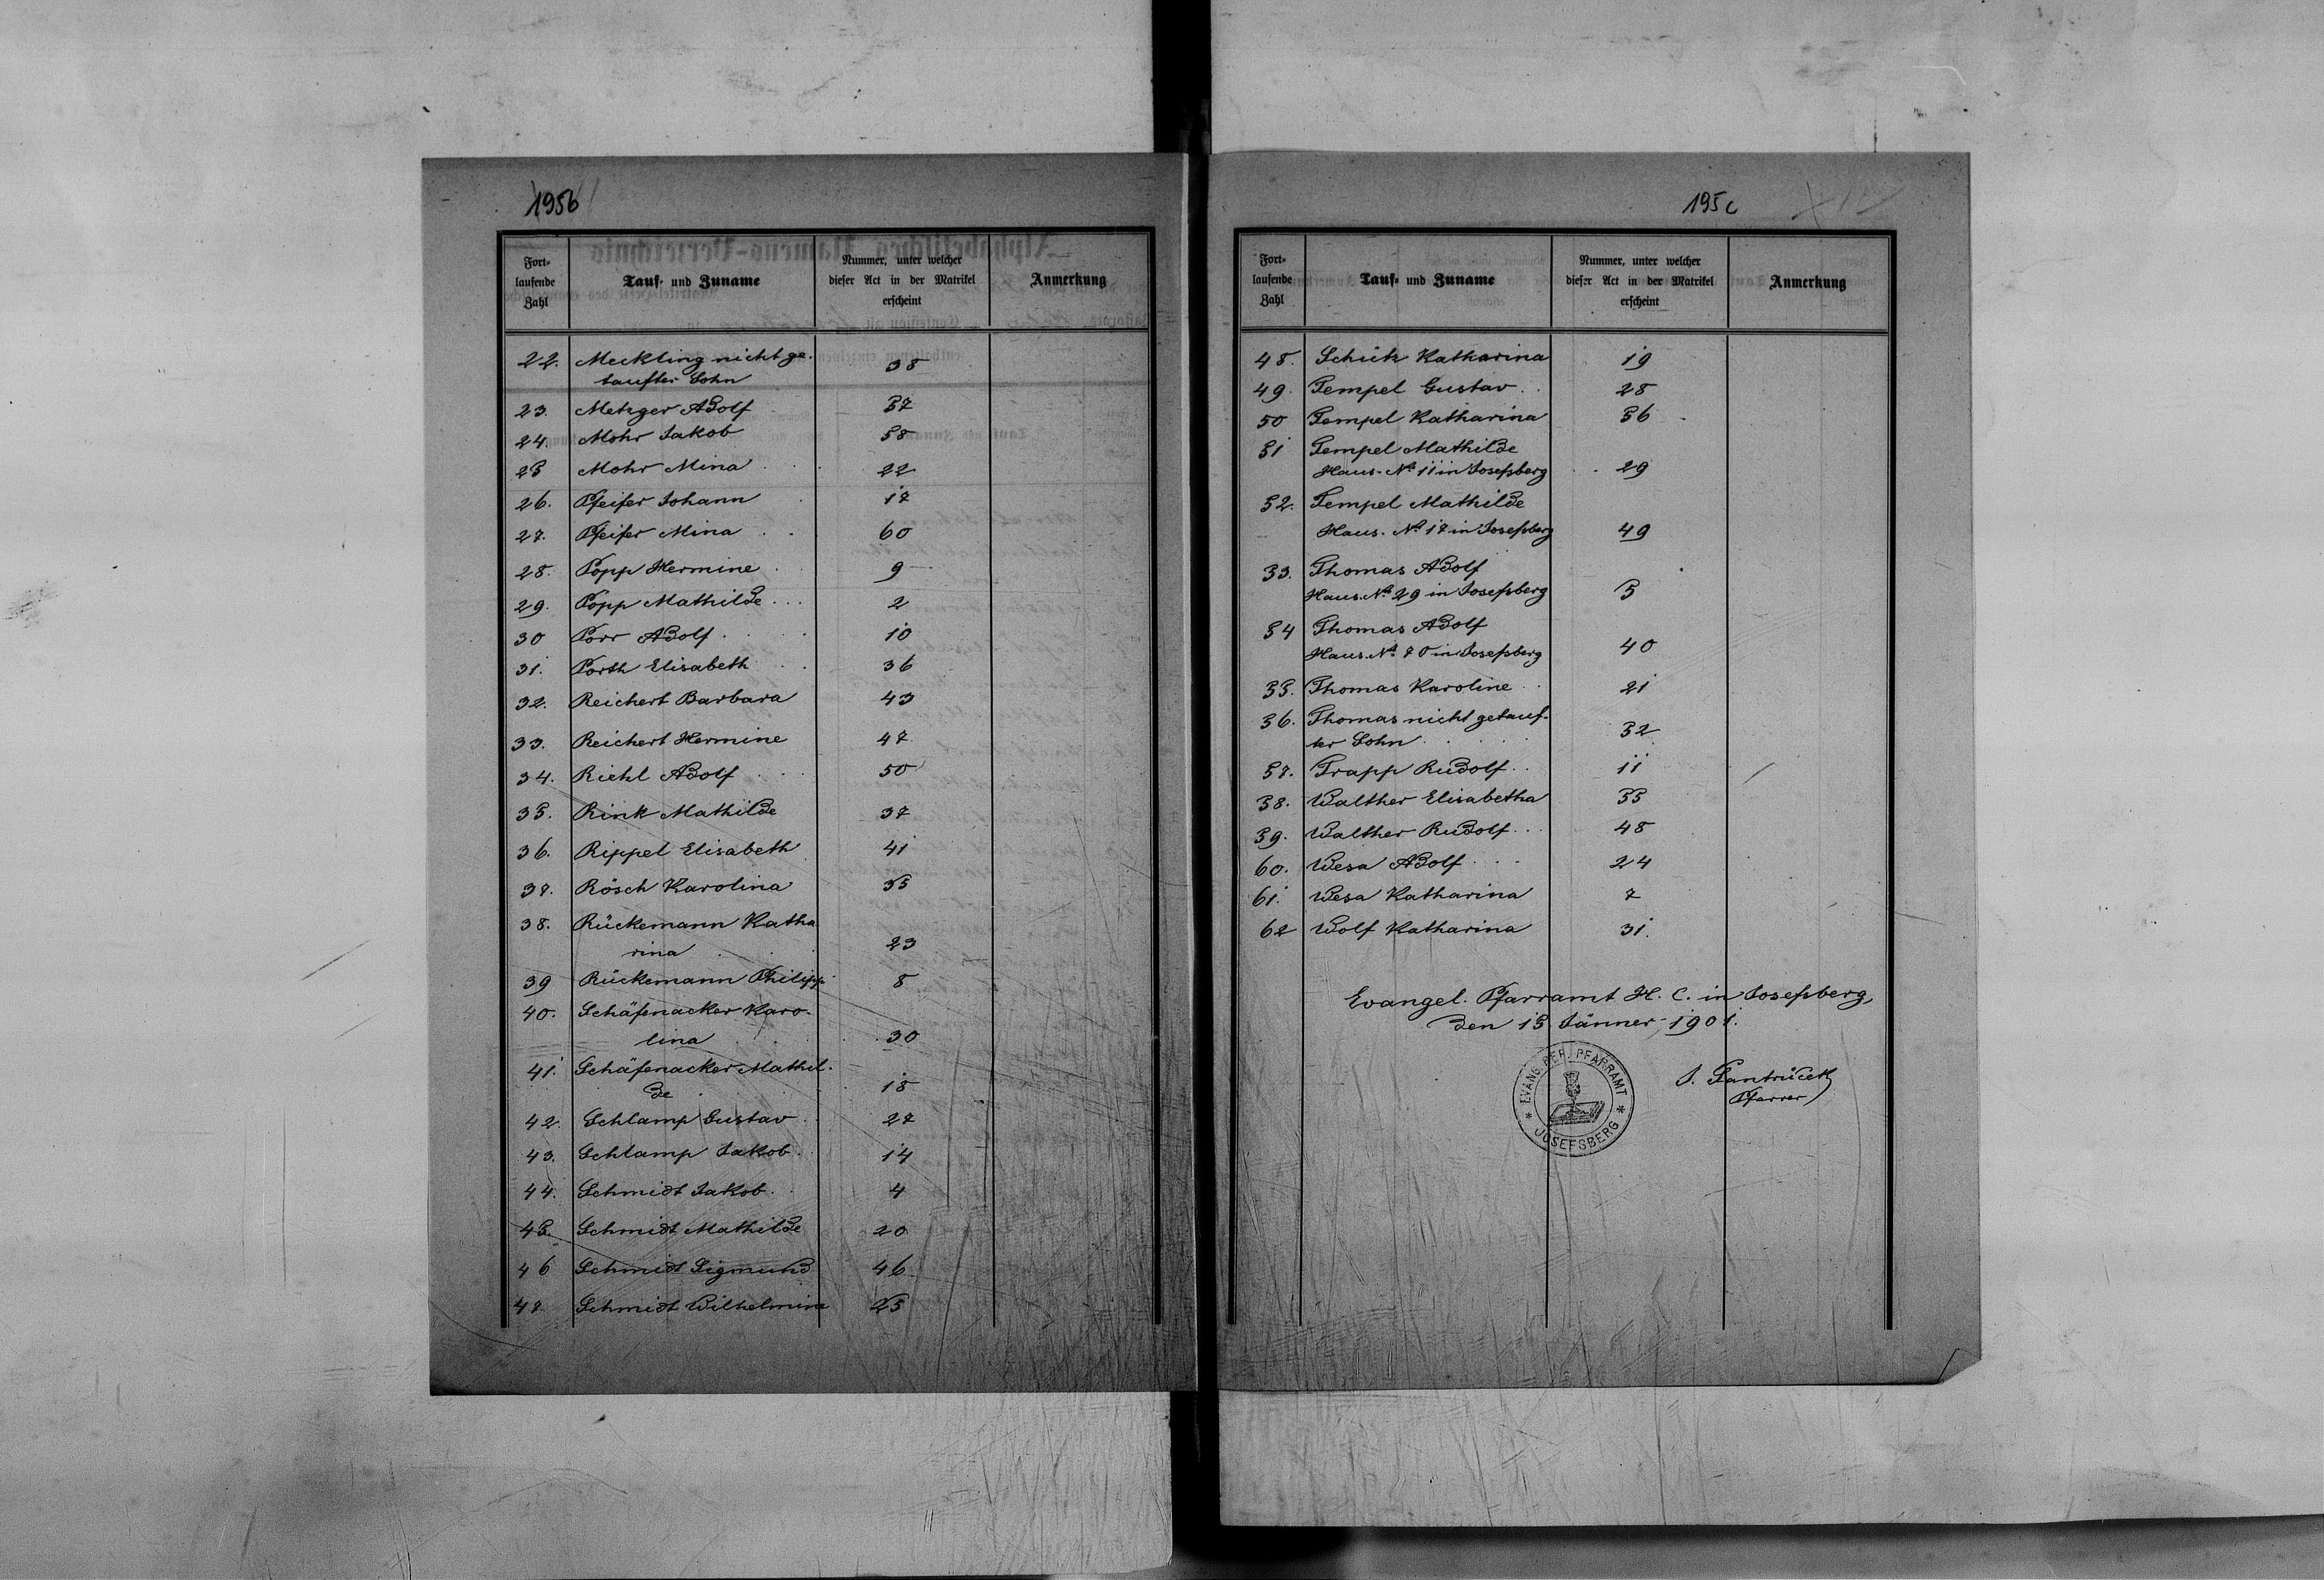 195b
Fort-
laufende
Zahl
Tauf- und Zuname
Nummer, unter welcher
dieser Act in der Matrikel
erscheint
Anmerkung
22. Meckling nicht ge-
taufter Sohn 38
23. Metzger Adolf 57
24. Mohr Jakob 58
25 Mohr Mina 22
26. Pfeifer Johann 17
27. Pfeifer Mina 60
28. Popp Hermine 9
29. Popp Mathilde 2
30 Porr Adolf 10
31. Porth Elisabeth 36
32. Reichert Barbara 43
33. Reichert Hermine 47
34. Riehl Adolf 50
35. Rink Mathilde 37
36. Rippel Elisabeth 41
37. Rösch Karolina 35
38. Rückemann Katha
rina 23
39 Rückemann Philipp 8
40. Schäfenacker Karo-
lina 30
41. Schäfenacker Mathil-
de 18
42. Schlamp Gustav 27
43. Schlamp Jakob 14
44. Schmidt Jakob 4
45. Schmidt Mathilde 20
46 Schmidt Sigmund 46
47. Schmidt Wilhelmine 25
195c
Fort-
laufende
Zahl
Tauf- und Zuname
Nummer, unter welcher
dieser Act in der Matrikel
erscheint
Anmerkung
48. Schütz Katharina 19
49. Tempel Gustav 28
50 Tempel Katharina 56
51 Tempel Mathilde
Haus-No 11 in Josefsberg 29
52. Tempel Mathilde
Haus-No 17 in Josefsberg 49
53. Thomas Adolf
Haus-No 29 in Josefsberg 5
54 Thomas Adolf
Haus-No 70 in Josefsberg 40
55. Thomas Karoline 21
56. Thomas nicht getauf-
ter Sohn 52
57. Trapp Rudolf 11
58. Walther Elisabetha 55
59. Walther Rudolf 48
60. Wesa Adolf 24
61. Wesa Katharina 7
62 Wolf Katharina 31
Evangel. Pfarramt H. C. in Josefsberg,
den 15 Jänner 1901.
EVANG. REF. PFARRAMT
JOSEFSBERG
Pfarrer